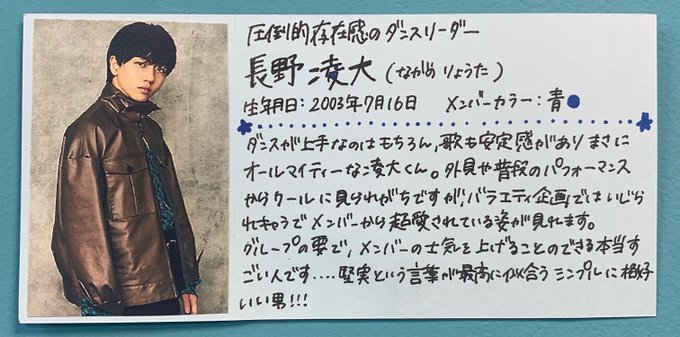 圧倒的存在感のダンスリーダー
長野凌大(ながの りょうた)
生年月日：2003年7月16日　メンバーカラー：青
ダンスが上手なのはもちろん、歌も安定感がありまさに
オールマイティーな凌大くん。外見や普段のパフォーマンス
からクールに見られがちですが、バラエティ企画ではいじら
れキャラでメンバーから超愛されている姿が見れます。
グループの要で、メンバーの士気を上げることのできる本当す
ごい人です....堅実という言葉が最高に似合うシンプルに格好
いい男!!!